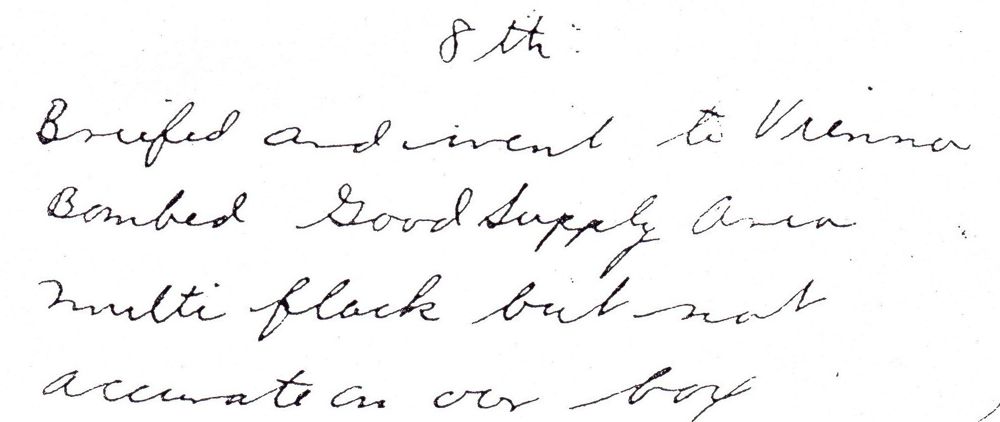 8th
Briefed and went to Vienna
Bombed Good Supply Area
Multi flack but not
accurate on our box